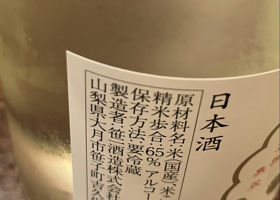 日本酒
原材料名:米(国産)、米
精米歩合:65% アルコー
保存方法:要冷蔵
製造者:笹一酒造株式会社
山梨県大月市笹子町吉久